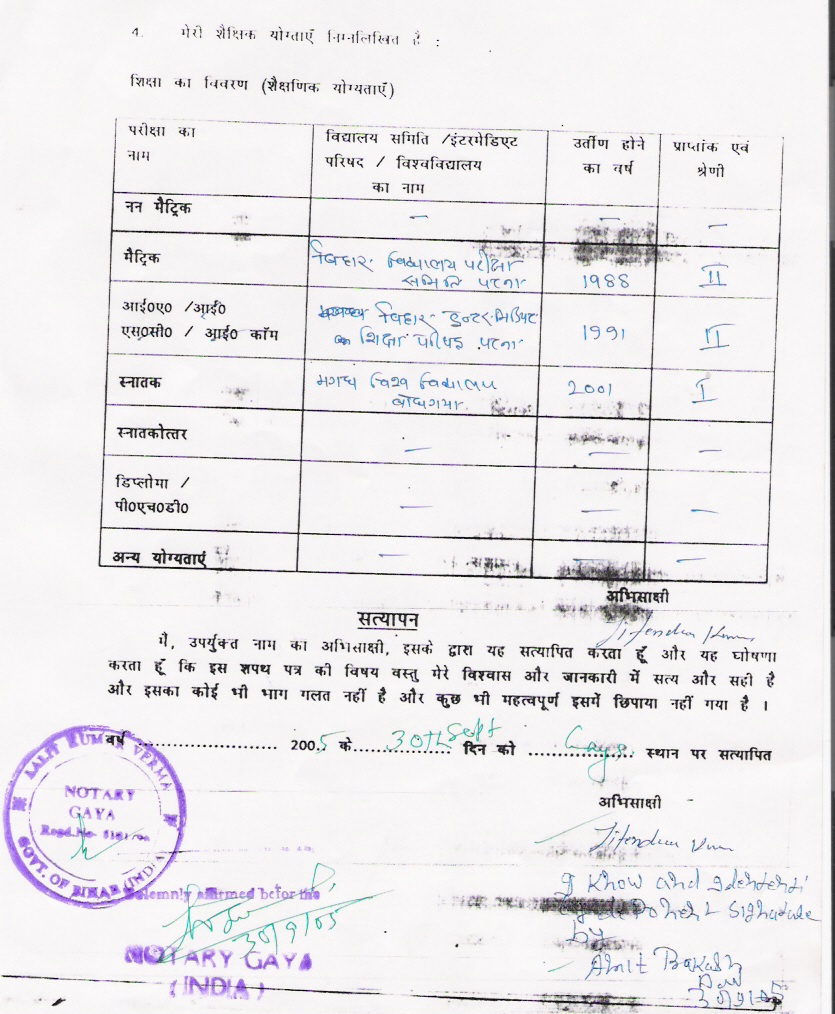 4. मेरी शैक्षिक योग्ताएँ निम्नलिखित है :
शिक्षा का विवरण (शैक्षणिक योग्यताएँ)
परीक्षा का नाम
विद्यालय समिति /इंटरमेडिएट परिषद / विश्वविद्यालय का नाम
उर्तीण होने का वर्ष
प्राप्तांक एवं श्रेणी
नन मैट्रिक — — —
मैट्रिक बिहार विद्यालय परीक्षा समिति पटना 1988 II
आई०ए० /आई० एस०सी० / आई० कॉम बिहार इन्टरमिडिएट शिक्षा परिषद पटना 1991 II
स्नातक मगध विश्व विद्यालय बोधगया. 2001 I
स्नातकोत्तर — — —
डिप्लोमा / पी०एच०डी० — — —
अन्य योग्यताएं — — —
अभिसाक्षी
सत्यापन
Jitendra Kumar
मै, उपर्युक्त नाम का अभिसाक्षी, इसके द्वारा यह सत्यापित करता हूँ और यह घोषणा
करता हूँ कि इस शपथ पत्र की विषय वस्तु मेरे विश्वास और जानकारी में सत्य और सही है
और इसका कोई भी भाग गलत नहीं है और कुछ भी महत्वपूर्ण इसमें छिपाया नहीं गया है ।
वर्ष ........................ 2005 के 30th Sept दिन को Gaya स्थान पर सत्यापित
LALIT KUMAR VERMA
NOTARY
GAYA
Regd.No-
GOVT. OF BIHAR (INDIA)
अभिसाक्षी
Jitendra
Solemnly affirmed before me
30/9/05
NOTARY GAYA
(INDIA)
I Know and
Signature
by
30/9/05